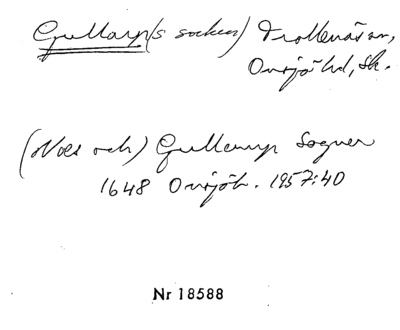 Gullarp(s socken) Trollenäs sn,
Onsjö hd, Sk.
(Näs och) Gullarup Sogner
1648 Onsjöh. 1957:40
Nr 18588